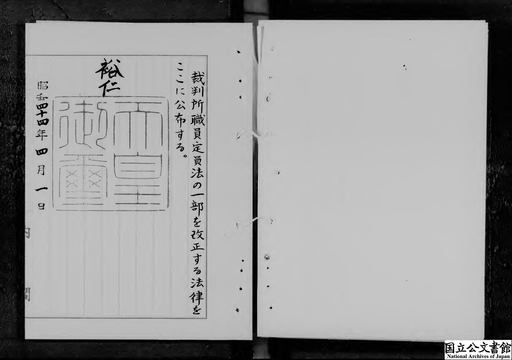 裁判所職員定員法の一部を改正する法律を
ここに公布する。
裕仁
天皇
御璽
昭和四十四年四月一日
内閣
国立公文書館
National Archives of Japan